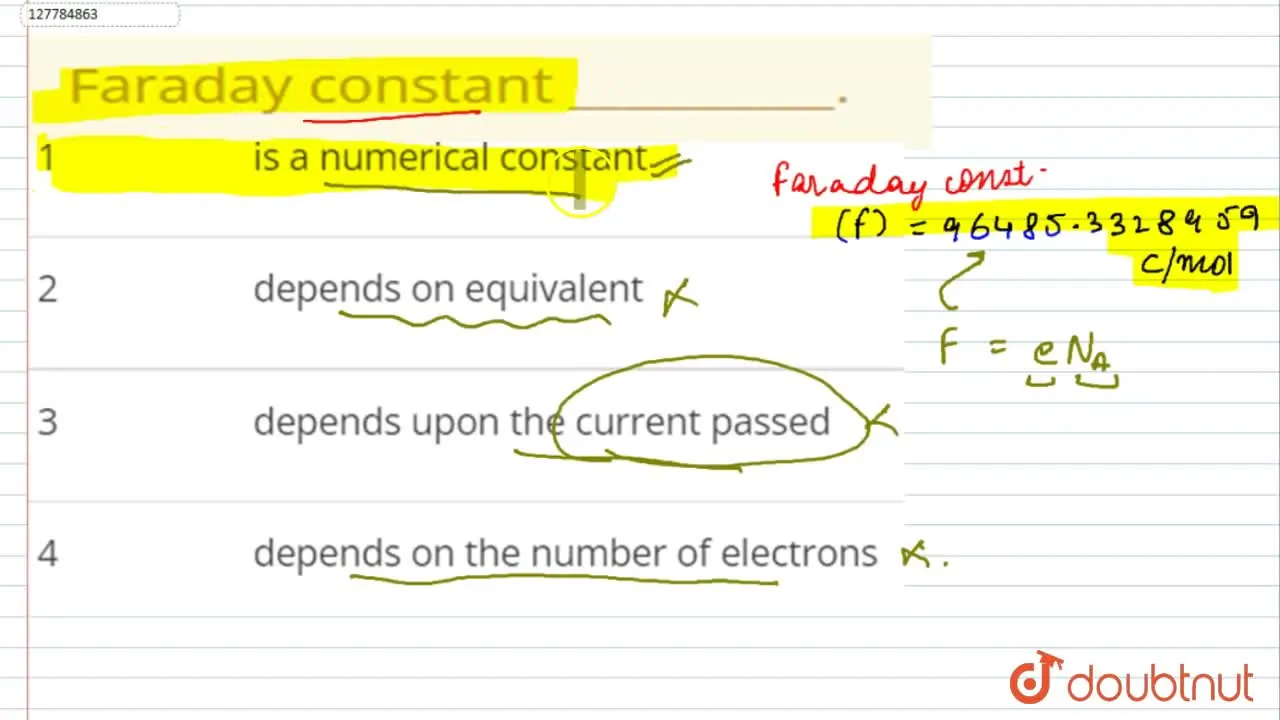 127784863
Faraday constant ____________.
1 is a numerical constant
faraday const.
(f) = 96485.3328959
C/mol
2 depends on equivalent
F = eNA
3 depends upon the current passed
4 depends on the number of electrons
doubtnut